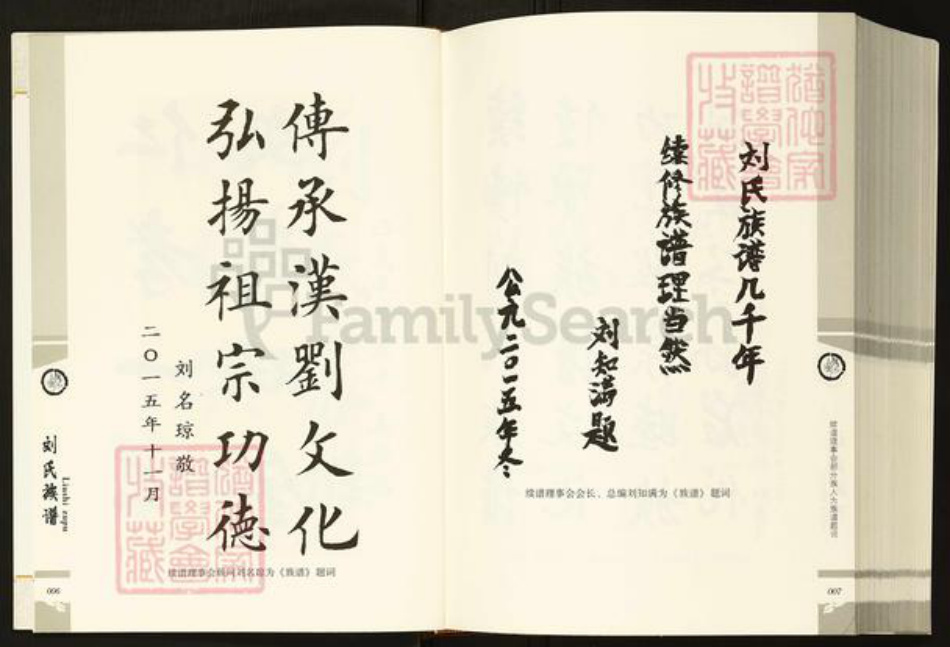 刘氏族谱几千年
续修族谱理当然
刘知满题
公九二〇一五年冬
续谱理事会会长、总编刘知满为《族谱》题词
续谱理事会部分族人为族谱题词
007
傳承漢劉文化
弘揚祖宗功德
刘名琼敬
二〇一五年十一月
续谱理事会顾问刘名琼为《族谱》题词
刘氏族谱
Liushi zupu
006
FamilySearch
譜學會
收藏
譜學會
收藏